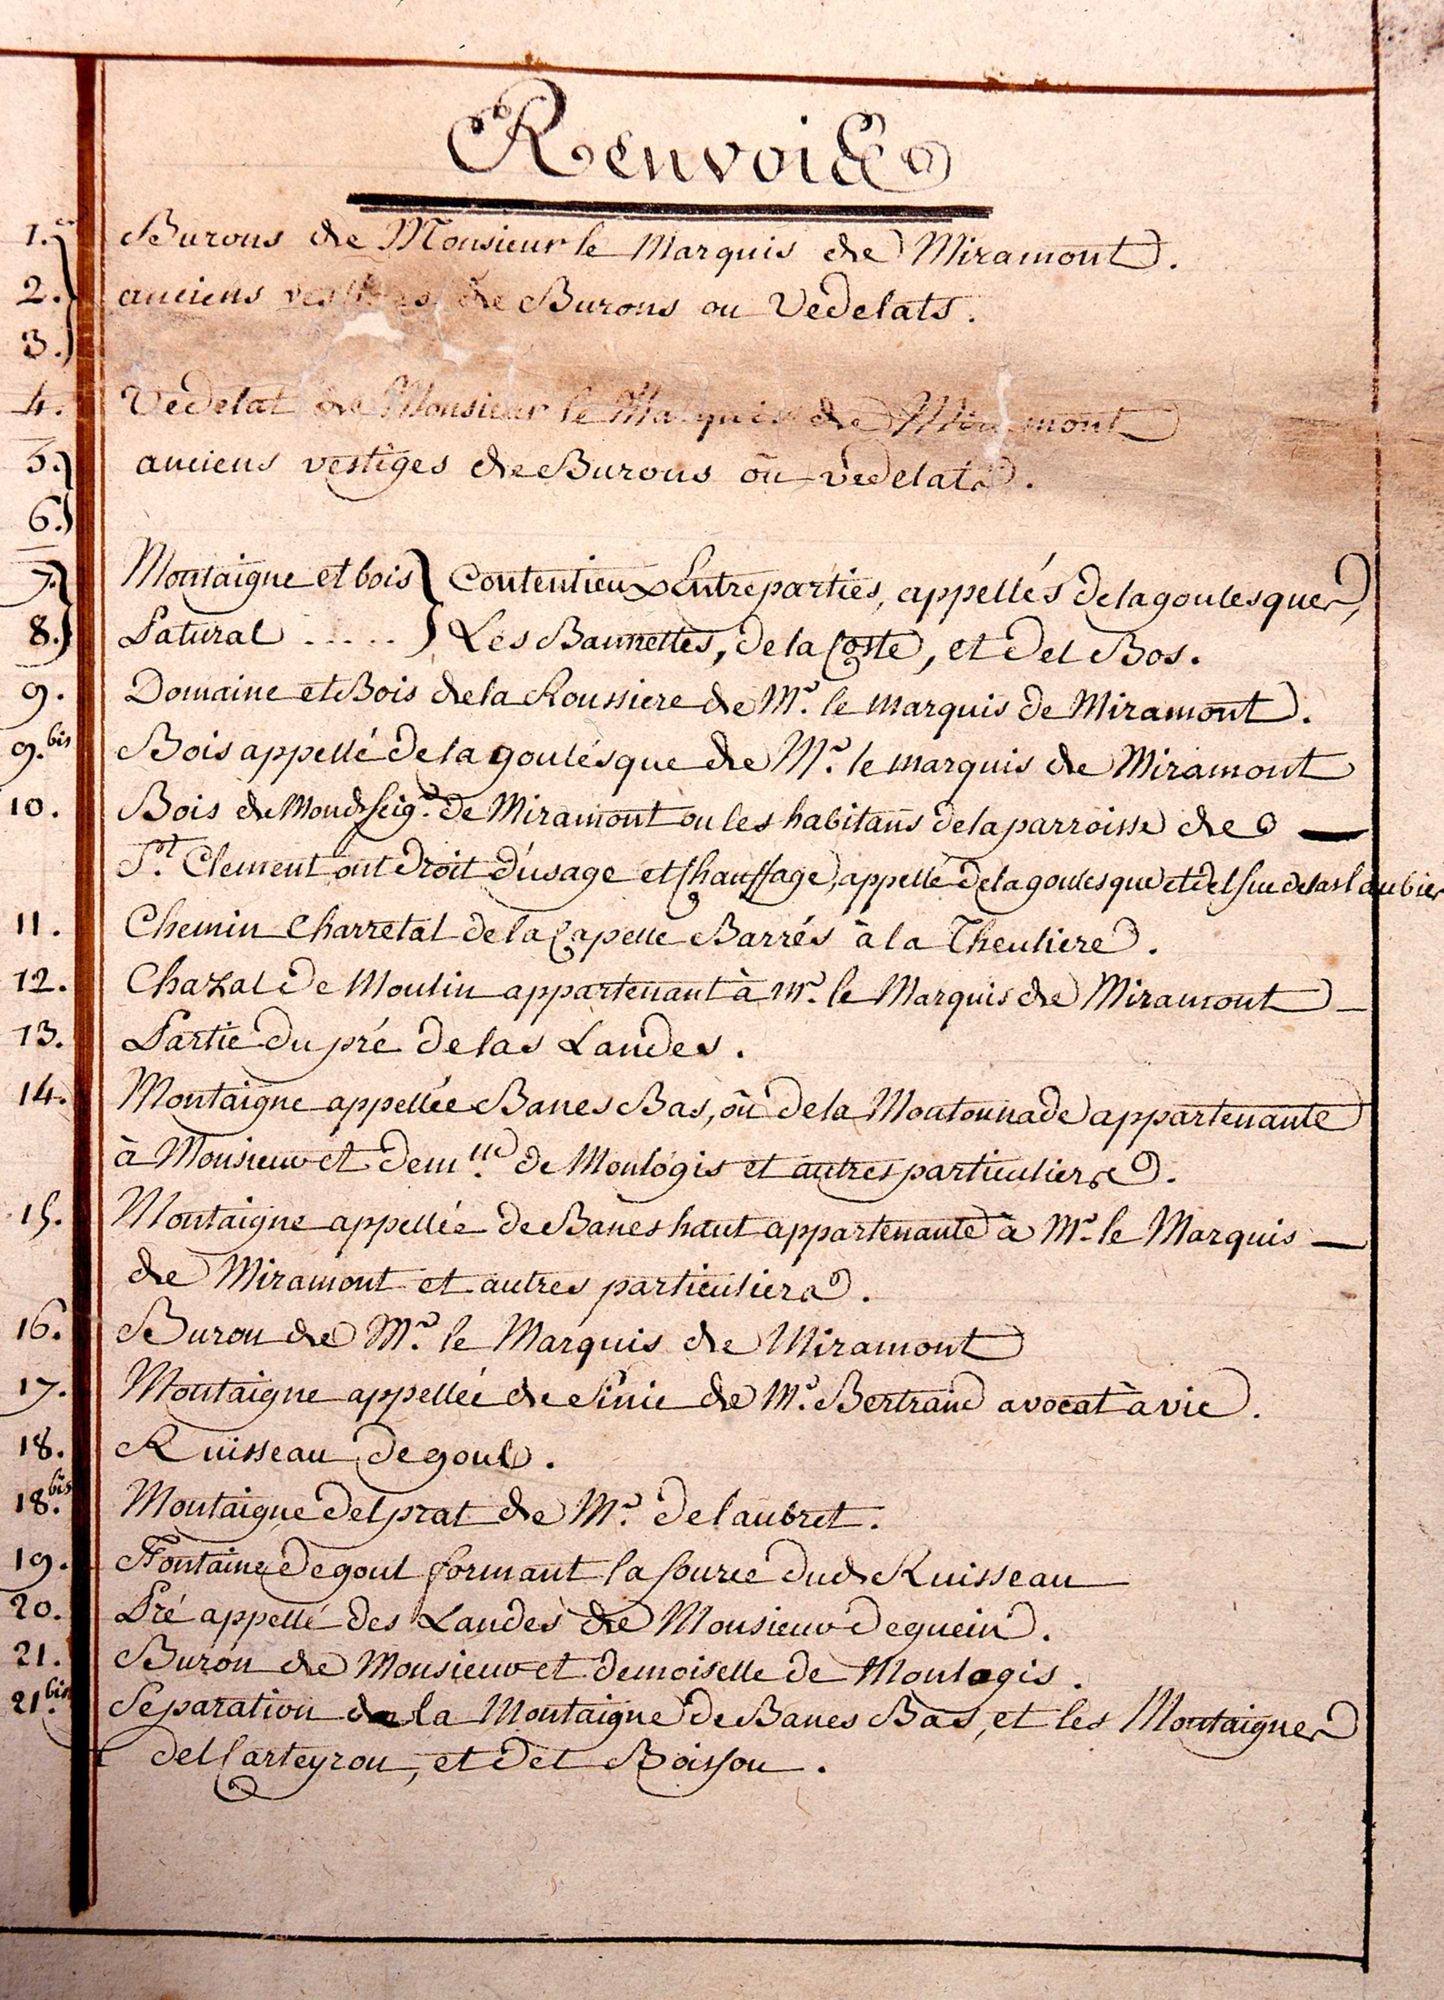 Renvois
1. Burons de Monsieur le Marquis de Miramont.
2. anciens vestiges de Burons ou Vedelats.
3.
4. Vedelat de Monsieur le Marquis de Miramont
5. anciens vestiges de Burons où vedelats.
6.
7. Montaigne et bois } Contentieux Entre parties, appellés de la goulesques,
8. Patural ..... } Les Baunettes, de la Coste, et del Bos.
9. Domaine et Bois de la Roussiere de Mr. le marquis de Miramont.
9.bis Bois appellé de la goulésque de Mr. le marquis de Miramont
10. Bois de Mond. Seigr. de Miramont ou les habitans de la parroisse de
St. Clement ont Droit d'usage et Chauffage, appellé de la goulesque et del suc de las laubies
11. Chemin Charretal de la Capelle Barrés à la Theuliere.
12. Chazal de Moulin appartenant à Mr. le Marquis de Miramont
13. Partie du pré de las Landes.
14. Montaigne appellée Banes Bas, où de la Moutounade appartenante
à Monsieur et demlle. de Monlogis et autres particuliers.
15. Montaigne appellée de Banes haut appartenante à Mr. le Marquis
de Miramont et autres particuliers.
16. Buron de Mr. le Marquis de Miramont
17. Montaigne appellée de Sinic de Mr. Bertrand avocat à vic.
18. Ruisseau de goul.
18.bis Montaigne del prat de Mr. delaubret.
19. Fontaine de goul formant la source dud. Ruisseau
20. Pré appellé des Landes de Monsieur deguein.
21. Buron de Monsieur et demoiselle de Monlogis.
21.bis Séparation de la Montaigne de Banes Bas, et les Montaignes
del Carteyrou, et del Boissou.